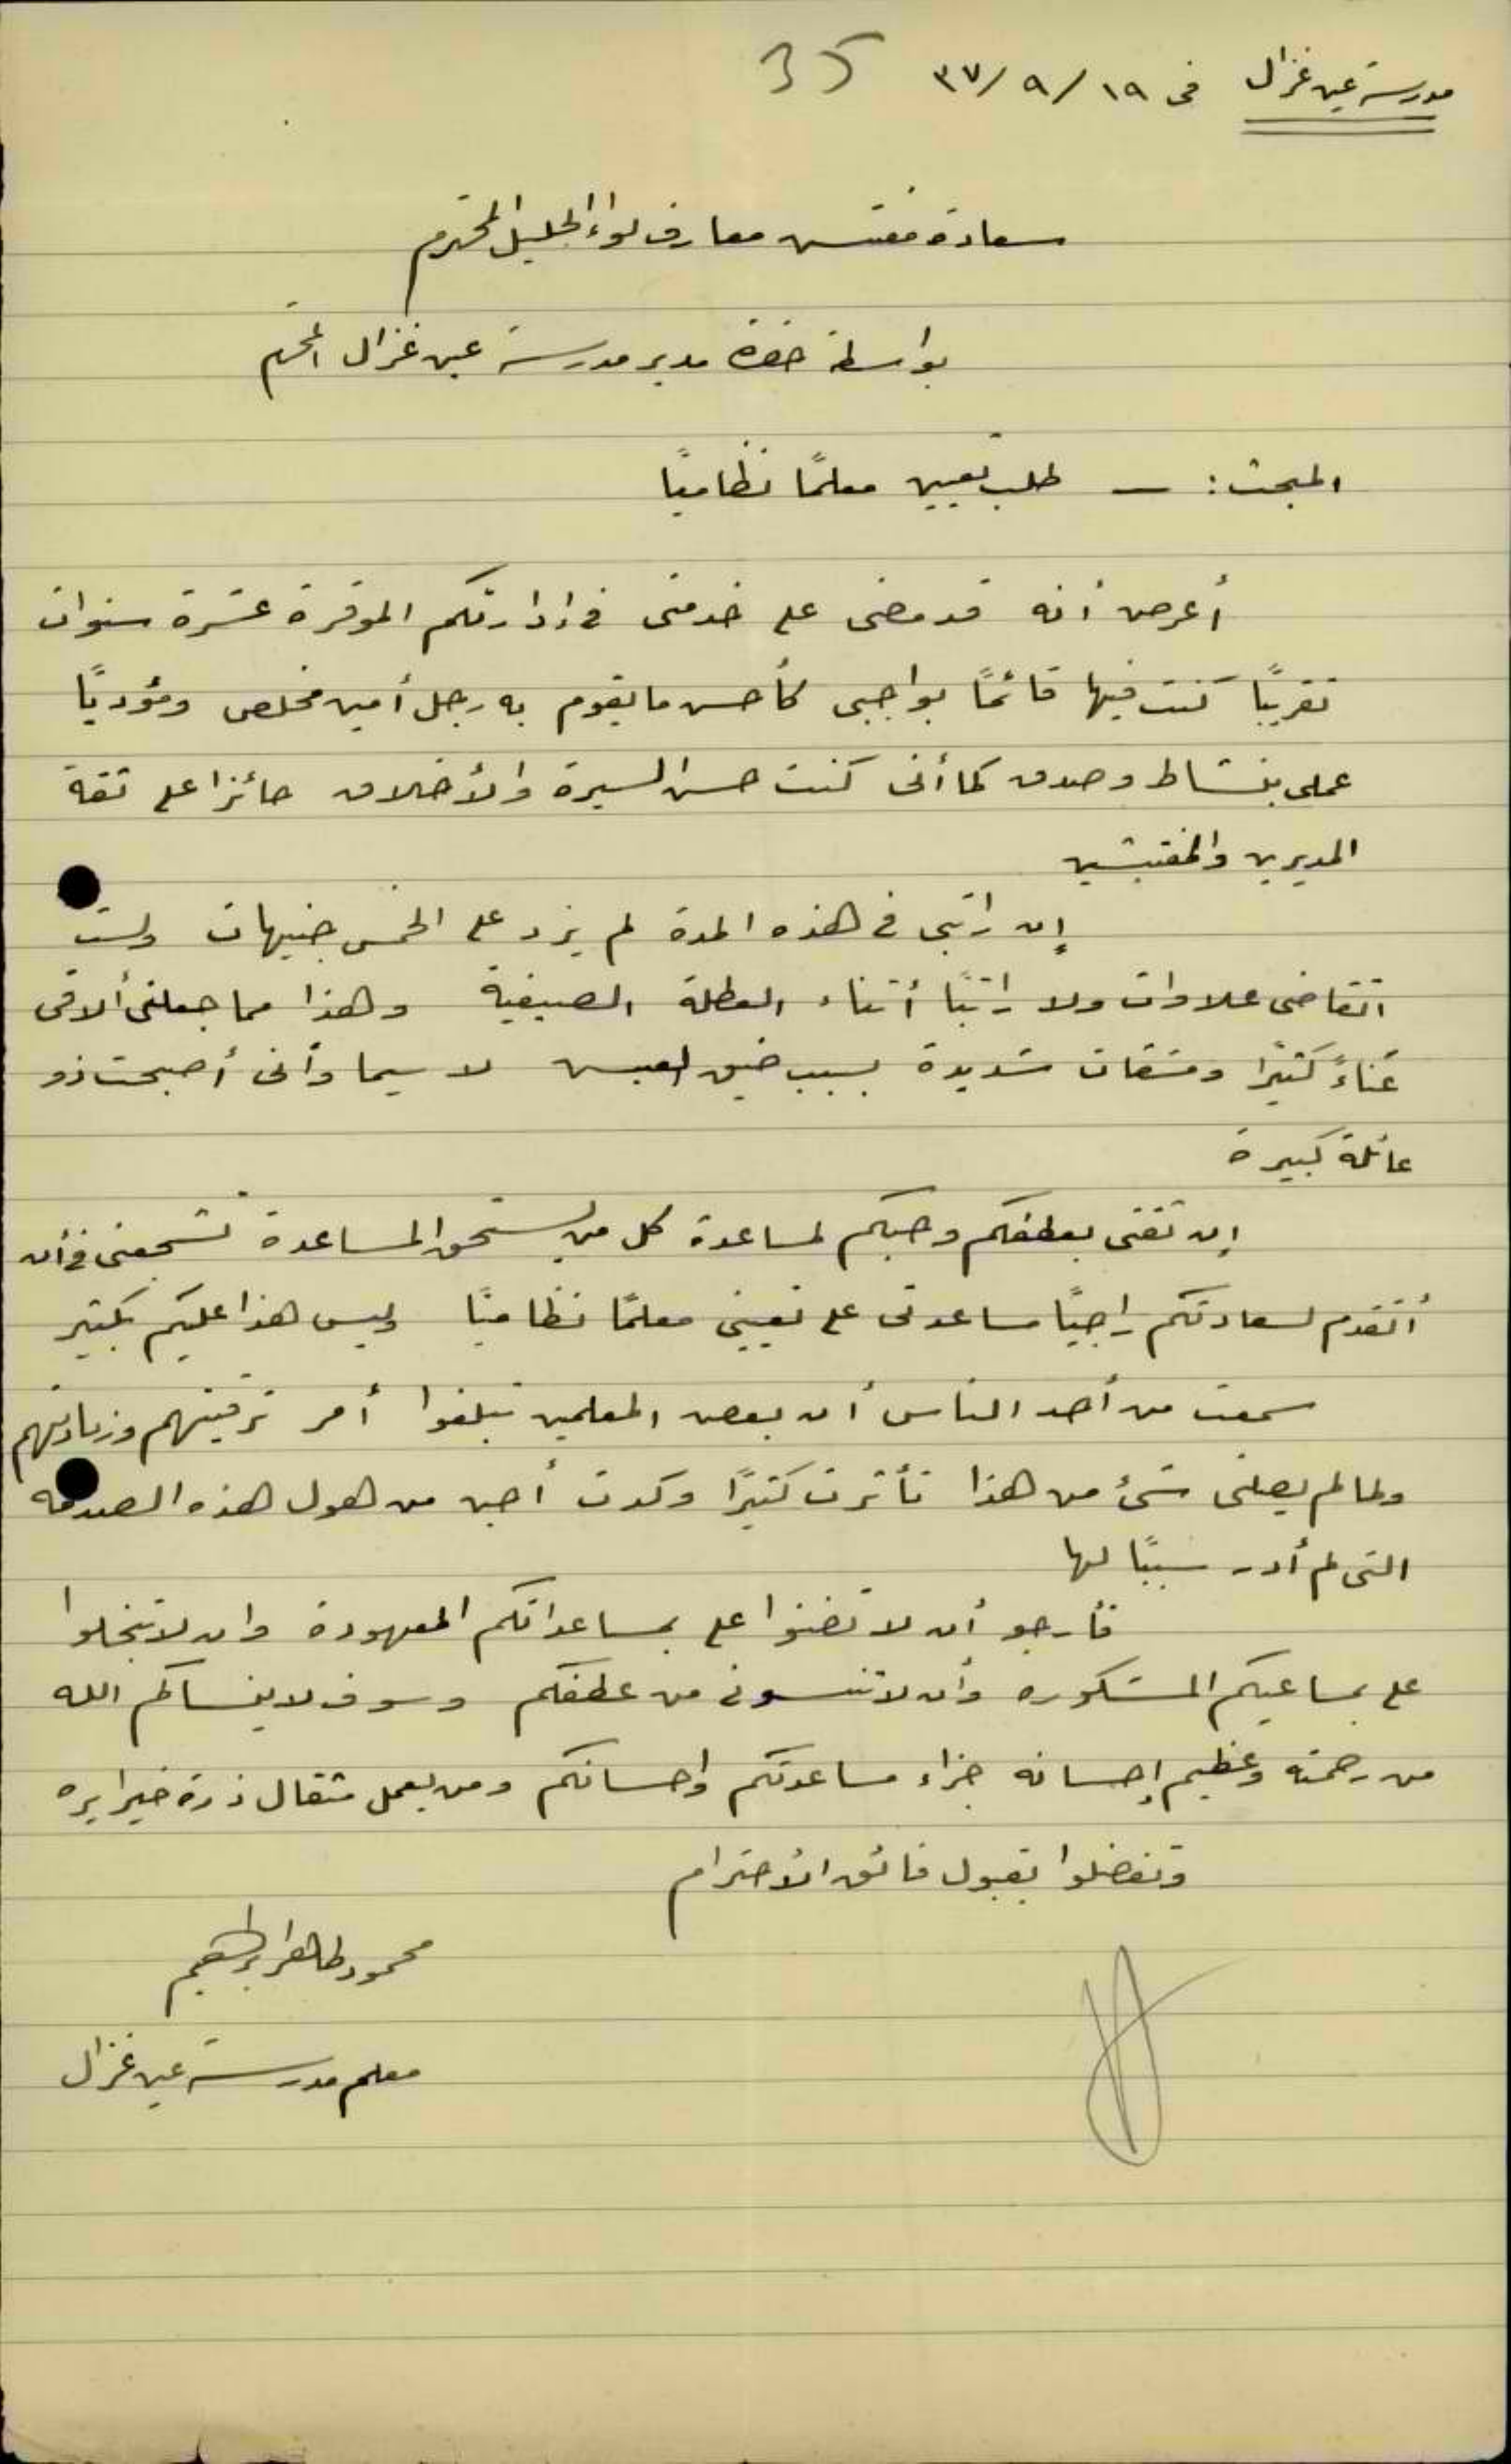 مدرسة عين غزال في ١٩/٩/٣٧ 35
سعادة مفتش معارف لواء الجليل المحترم
بواسطة حضرة مدير مدرسة عين غزال المحترم
المبحث : ـ طلب تعيين معلمًا نظاميًا
أعرض أنه قد مضى على خدمتي في إدارتكم الموقرة عشرة سنوات
تقريبًا كنت فيها قائمًا بواجبي كأحسن ما يقوم به رجل أمين مخلص ومؤديًا
عملي بنشاط وصدق كما أني كنت حسن السيرة والأخلاق حائزا على ثقة
المديرين والمفتشين
إن راتبي في هذه المدة لم يزد على الخمس جنيهات ولست
اتقاضى علاوات ولا راتبًا أثناء العطلة الصيفية وهذا مما جعلني ألاقي
عناءً كثيرًا ومشقات شديدة بسبب ضيق العيش لا سيما وأني أصبحت ذو
عائلة كبيرة
إن ثقتي بعطفكم وحبكم لمساعدة كل من يستحق المساعدة تشجعني في أن
أتقدم لسعادتكم راجيًا مساعدتي على تعييني معلمًا نظاميًا وليس هذا عليكم بكثير
سمعت من أحد الناس أن بعض المعلمين تبلغوا أمر ترقيتهم وزيادتهم
ولما لم يصلني شئ من هذا تأثرت كثيرًا وكدت أجن من هول هذه الصدمة
التي لم أدر سببًا لها
فأرجو أن لا تضنوا علي بمساعداتكم المعهودة وان لا تبخلوا
علي بمساعيكم المشكوره وأن لا تنسوني من عطفكم وسوف لا ينساكم الله
من رحمته وعظيم إحسانه جزاء مساعدتكم واحسانكم ومن يعمل مثقال ذرة خيرا يره
وتفضلوا بقبول فائق الأحترام
محمود طاهر ابراهيم
معلم مدرسة عين غزال